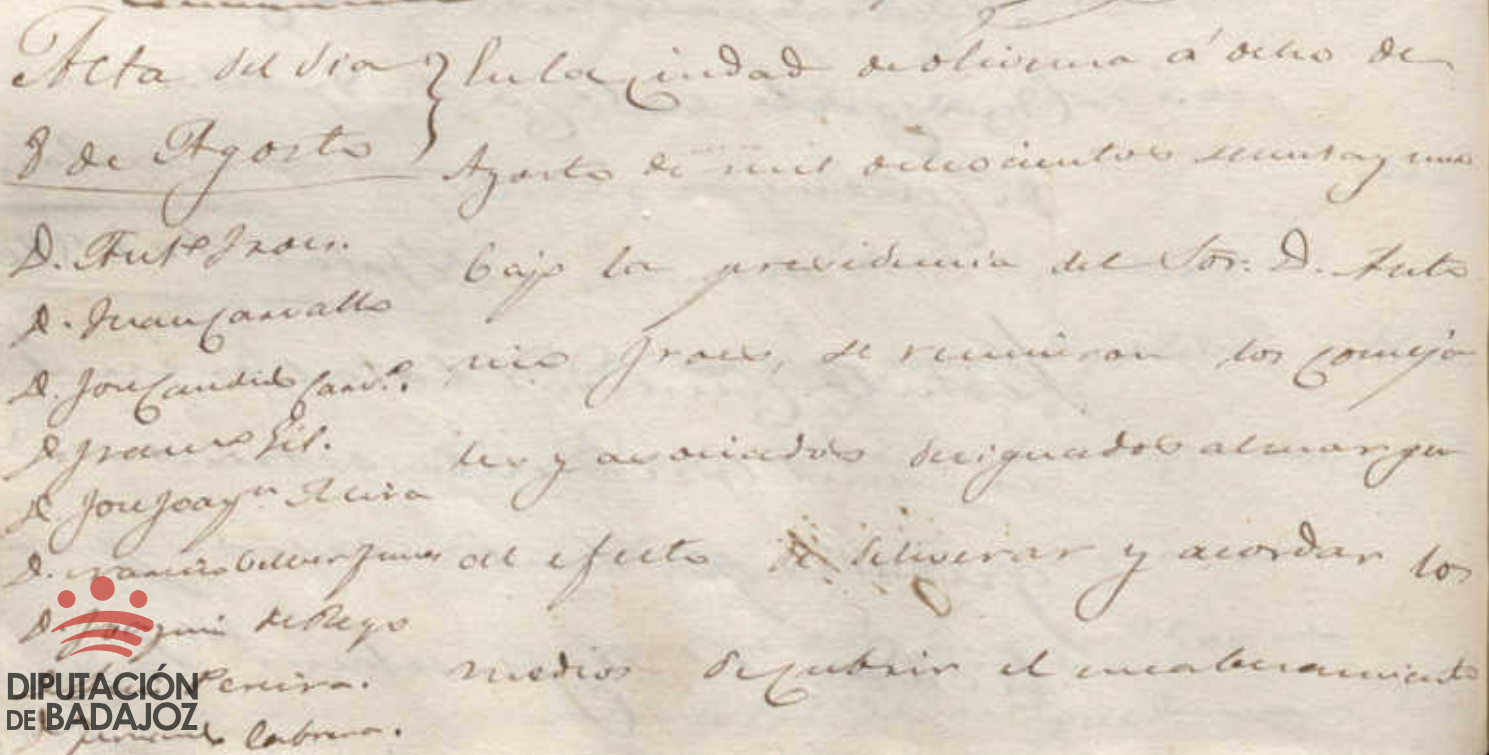 Acta del dia
8 de Agosto
D. Antº Fraes.
D. Juan Carvallo
D. Jose Candido Carv.º
D Franc.º Gil.
D Jose Joaqn
D.
D. Joaquin de Rego
Pereira.
D Cabrera.
En la Ciudad de Olivenza á ocho de
Agosto de mil ochocientos sesenta y uno
bajo la presidencia del Sor. D. Anto
nio Fraes, se reunieron los Conceja
les y asociados designados al margen
al efecto de deliverar y acordar los
medios de cubrir el encabezamiento
DIPUTACIÓN
DE BADAJOZ